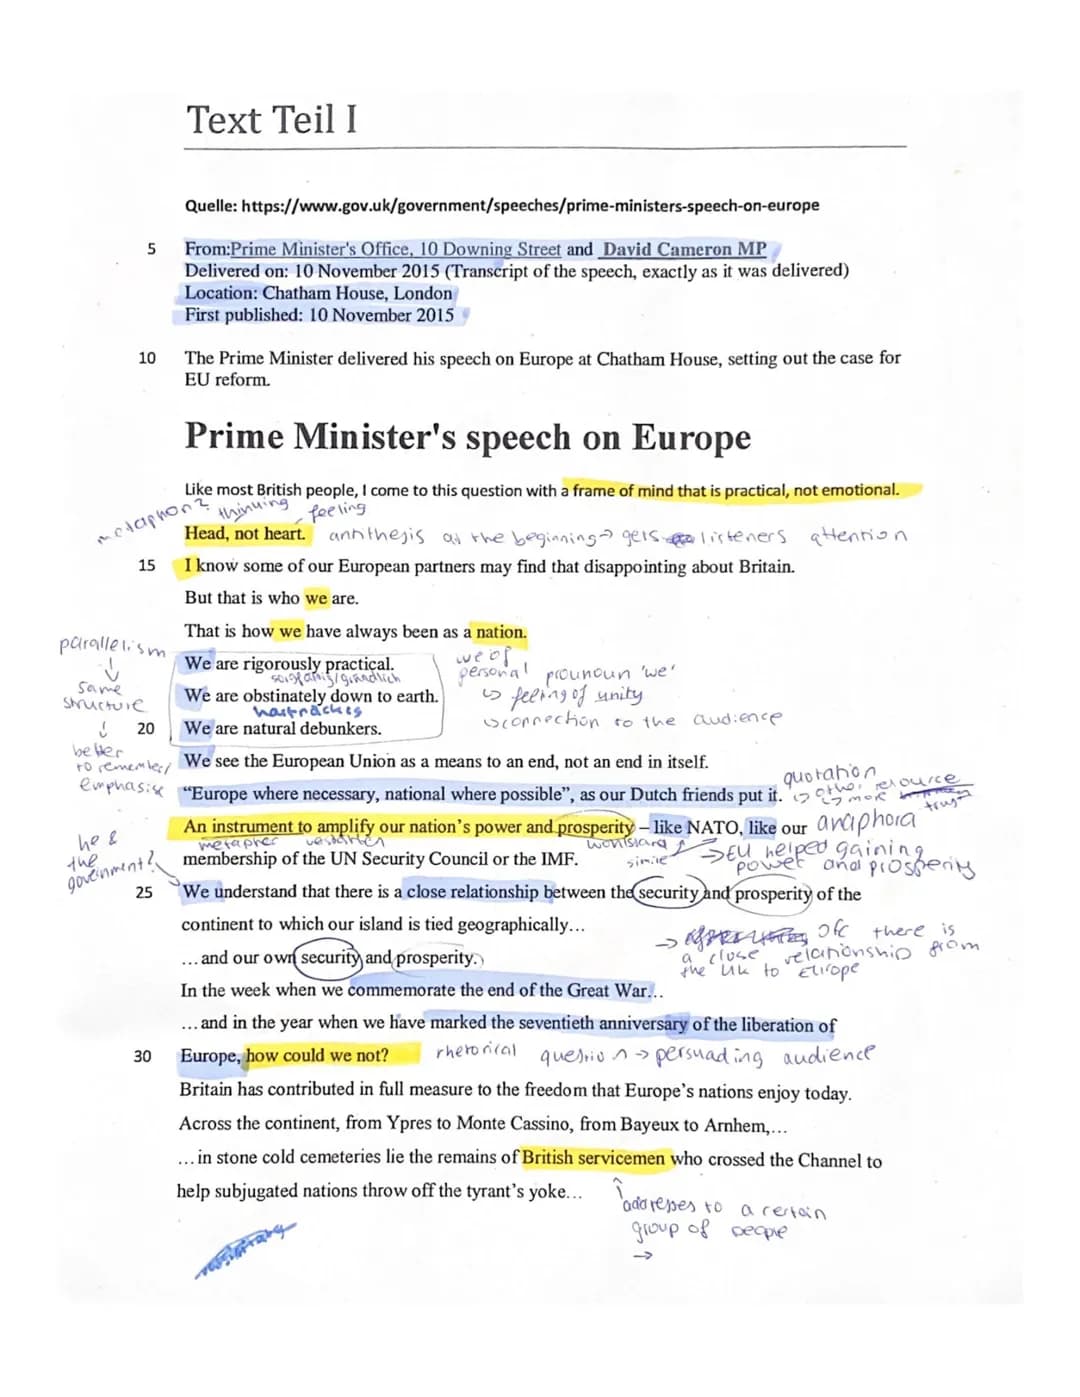 Text Teil I
Quelle: https://www.gov.uk/government/speeches/prime-ministers-speech-on-europe
5 From:Prime Minister's Office, 10 Downing Street and David Cameron MP
Delivered on: 10 November 2015 (Transcript of the speech, exactly as it was delivered)
Location: Chatham House, London
First published: 10 November 2015
10 The Prime Minister delivered his speech on Europe at Chatham House, setting out the case for
EU reform.
Prime Minister's speech on Europe
Like most British people, I come to this question with a frame of mind that is practical, not emotional.
metaphor? thinking feeling
Head, not heart. antithesis at the beginning → gets listeners attention
15 I know some of our European partners may find that disappointing about Britain.
But that is who we are.
That is how we have always been as a nation.
parallelism
↓
same
structure
↓
better
to remember/
emphasise
We are rigorously practical.
sorgfältig/gründlich
We are obstinately down to earth.
hartnäckig
20 We are natural debunkers.
we of
personal pronoun 'we'
↳ feeling of unity
↳ connection to the audience
We see the European Union as a means to an end, not an end in itself.
quotation
“Europe where necessary, national where possible”, as our Dutch friends put it. ↳ other resource
↳ more trust
An instrument to amplify our nation's power and prosperity – like NATO, like our anaphora
metapher verstärken wohlstand simile
→ EU helped gaining
power and prosperity
membership of the UN Security Council or the IMF.
he &
the
government?
25 We understand that there is a close relationship between the security and prosperity of the
continent to which our island is tied geographically…
→ ofc there is
a close relationship from
the UK to Europe
… and our own security and prosperity.
In the week when we commemorate the end of the Great War…
… and in the year when we have marked the seventieth anniversary of the liberation of
30 Europe, how could we not? rhetorical question → persuading audience
Britain has contributed in full measure to the freedom that Europe's nations enjoy today.
Across the continent, from Ypres to Monte Cassino, from Bayeux to Arnhem,…
… in stone cold cemeteries lie the remains of British servicemen who crossed the Channel to
help subjugated nations throw off the tyrant's yoke…
addresses to a certain
group of people
→